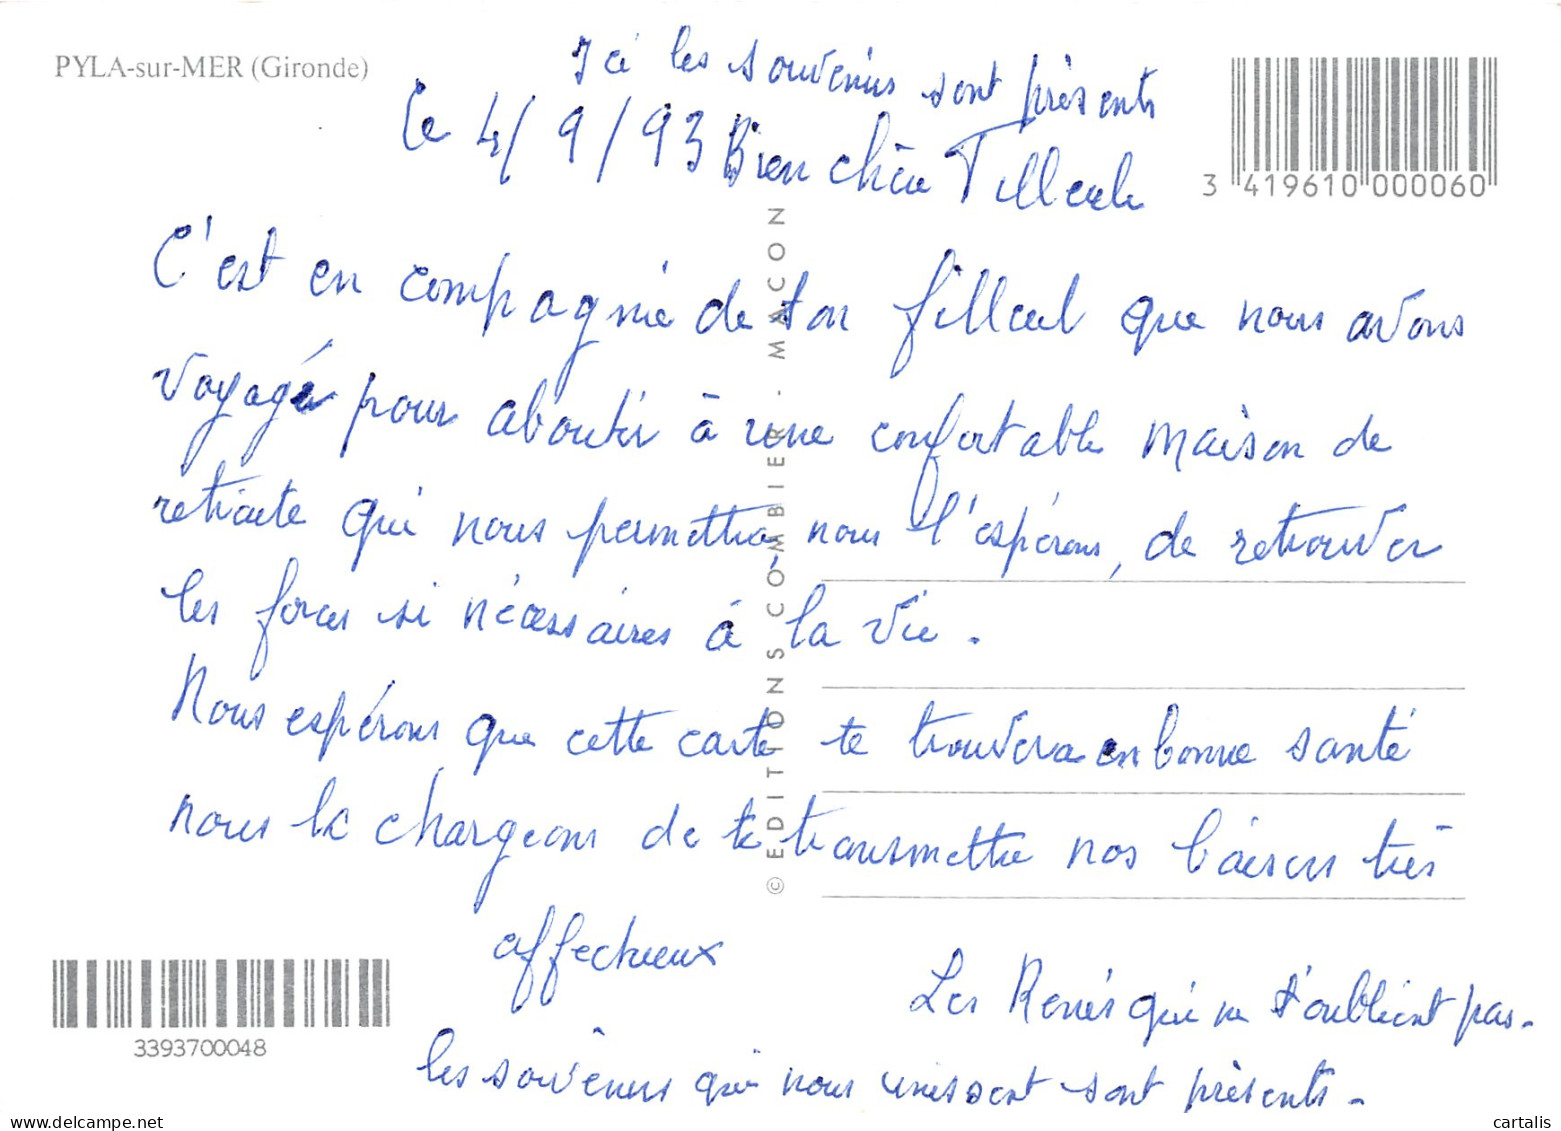 PYLA-sur-MER (Gironde)
Ici les souvenirs sont présents
Le 4/9/93 Bien chère Tilleule
3 419610 000060
C'est en compagnie de ton filleul que nous avons
voyagé pour aboutir à une confortable maison de
retraite qui nous permettra, nous l'espérons, de retrouver
les forces si nécessaires à la vie.
Nous espérons que cette carte te trouvera en bonne santé
nous la chargeons de te transmettre nos baisers très
affectueux
Les Renés qui ne t'oublient pas.
les souvenirs qui nous unissent sont présents.
© EDITIONS COMBIER - MACON
3393700048
delcampe.net
cartalis